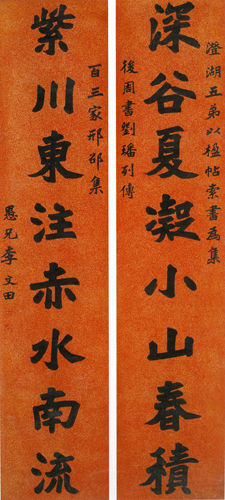 澄湖五弟以楹帖索書為集
深谷夏凝小山春積
後周書劉璠列傳
百三家邢邵集
紫川東注赤水南流
愚兄李文田